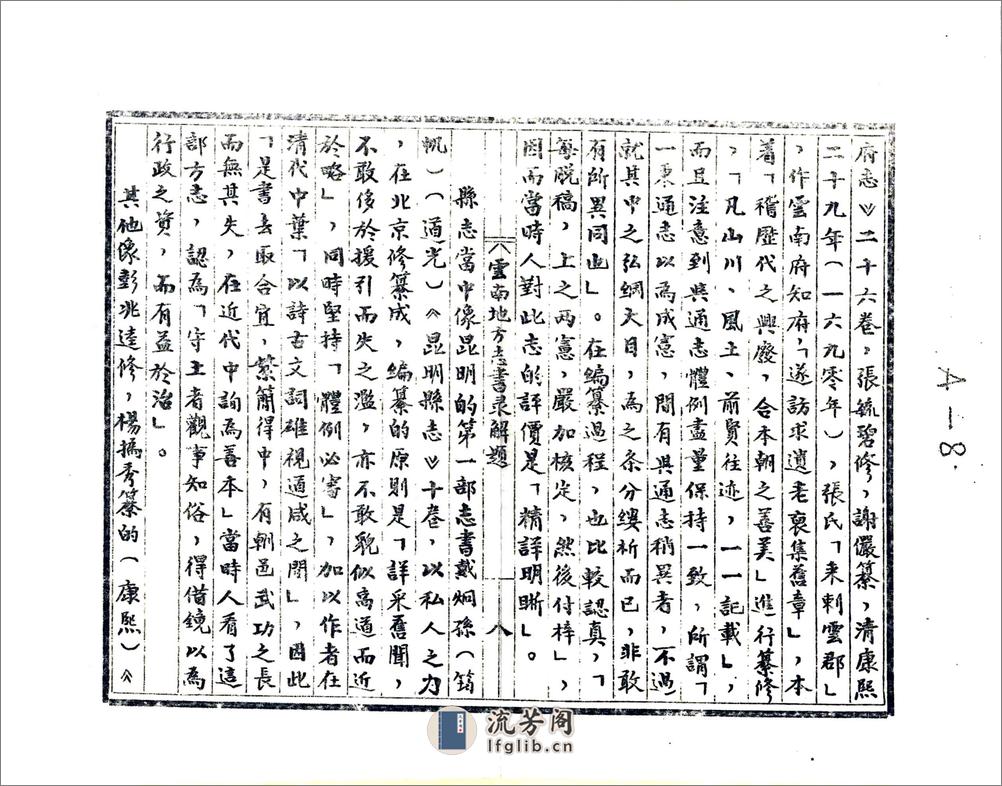 府志》二十六卷，張毓碧修，謝儼纂，清康熙
二十九年（一六九零年），張氏「来剌雲郡」
，作雲南府知府，「遂訪求遺老裒集舊章」，本
着「稽歷代之興廢，合本朝之善美」進行纂修
，「凡山川、風土、前賢往迹，一一記載」，
而且注意到與通志體例盡量保持一致，所謂「
一秉通志以為成憲，間有與通志稍異者，不過
就其中之弘綱大目，為之条分缕析而已，非敢
有所異同也」。在编纂過程，也比較認真，「
每脱稿，上之两憲，嚴加核定，然後付梓」，
因而當時人對此志的評價是「精詳明晰」。
雲南地方志書录解題
八
縣志當中像昆明的第一部志書戴炯孫（筠
帆）（道光）《昆明縣志》十卷，以私人之力
，在北京修纂成，编纂的原則是「詳采舊聞，
不敢侈於援引而失之濫，亦不敢貌似高遒而近
於略」，同時堅持「體例必審」，加以作者在
清代中葉「以詩古文詞雄視道咸之間」，因此
「是書去取合宜，繁簡得中，有朝邑武功之長
而無其失，在近代中詢為善本」當時人看了這
部方志，認為「守土者觀事知俗，得借鏡以為
行政之資，而有益於治」。
其他像彭兆逵修，楊撝秀纂的（康熙）《
A—8.
流芳阁
lfglib.cn